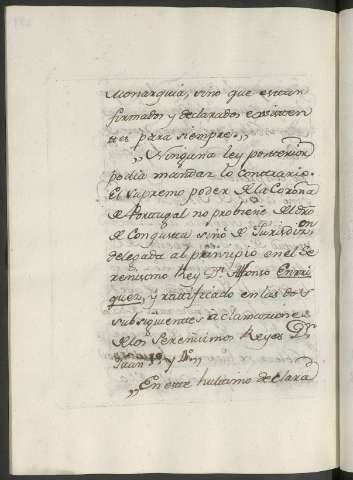 Monarquia, sino que estan
firmados y declarados existen
tes para siempre,,
,, Ninguna ley posterior
podia mandar lo contrario.
El supremo poder de la Corona
de Portugal no probiene del dro
de Conquista sino de Jurisdicion
delegada al principio en el Se
renisimo Rey Dn. Alfonso Enrri
quez, y ratificado en las dos
subsiguientes aclamaciones
de los Serenisimos Reyes Dn.
Juan 1º y 4º,,
,, En este hultimo declara